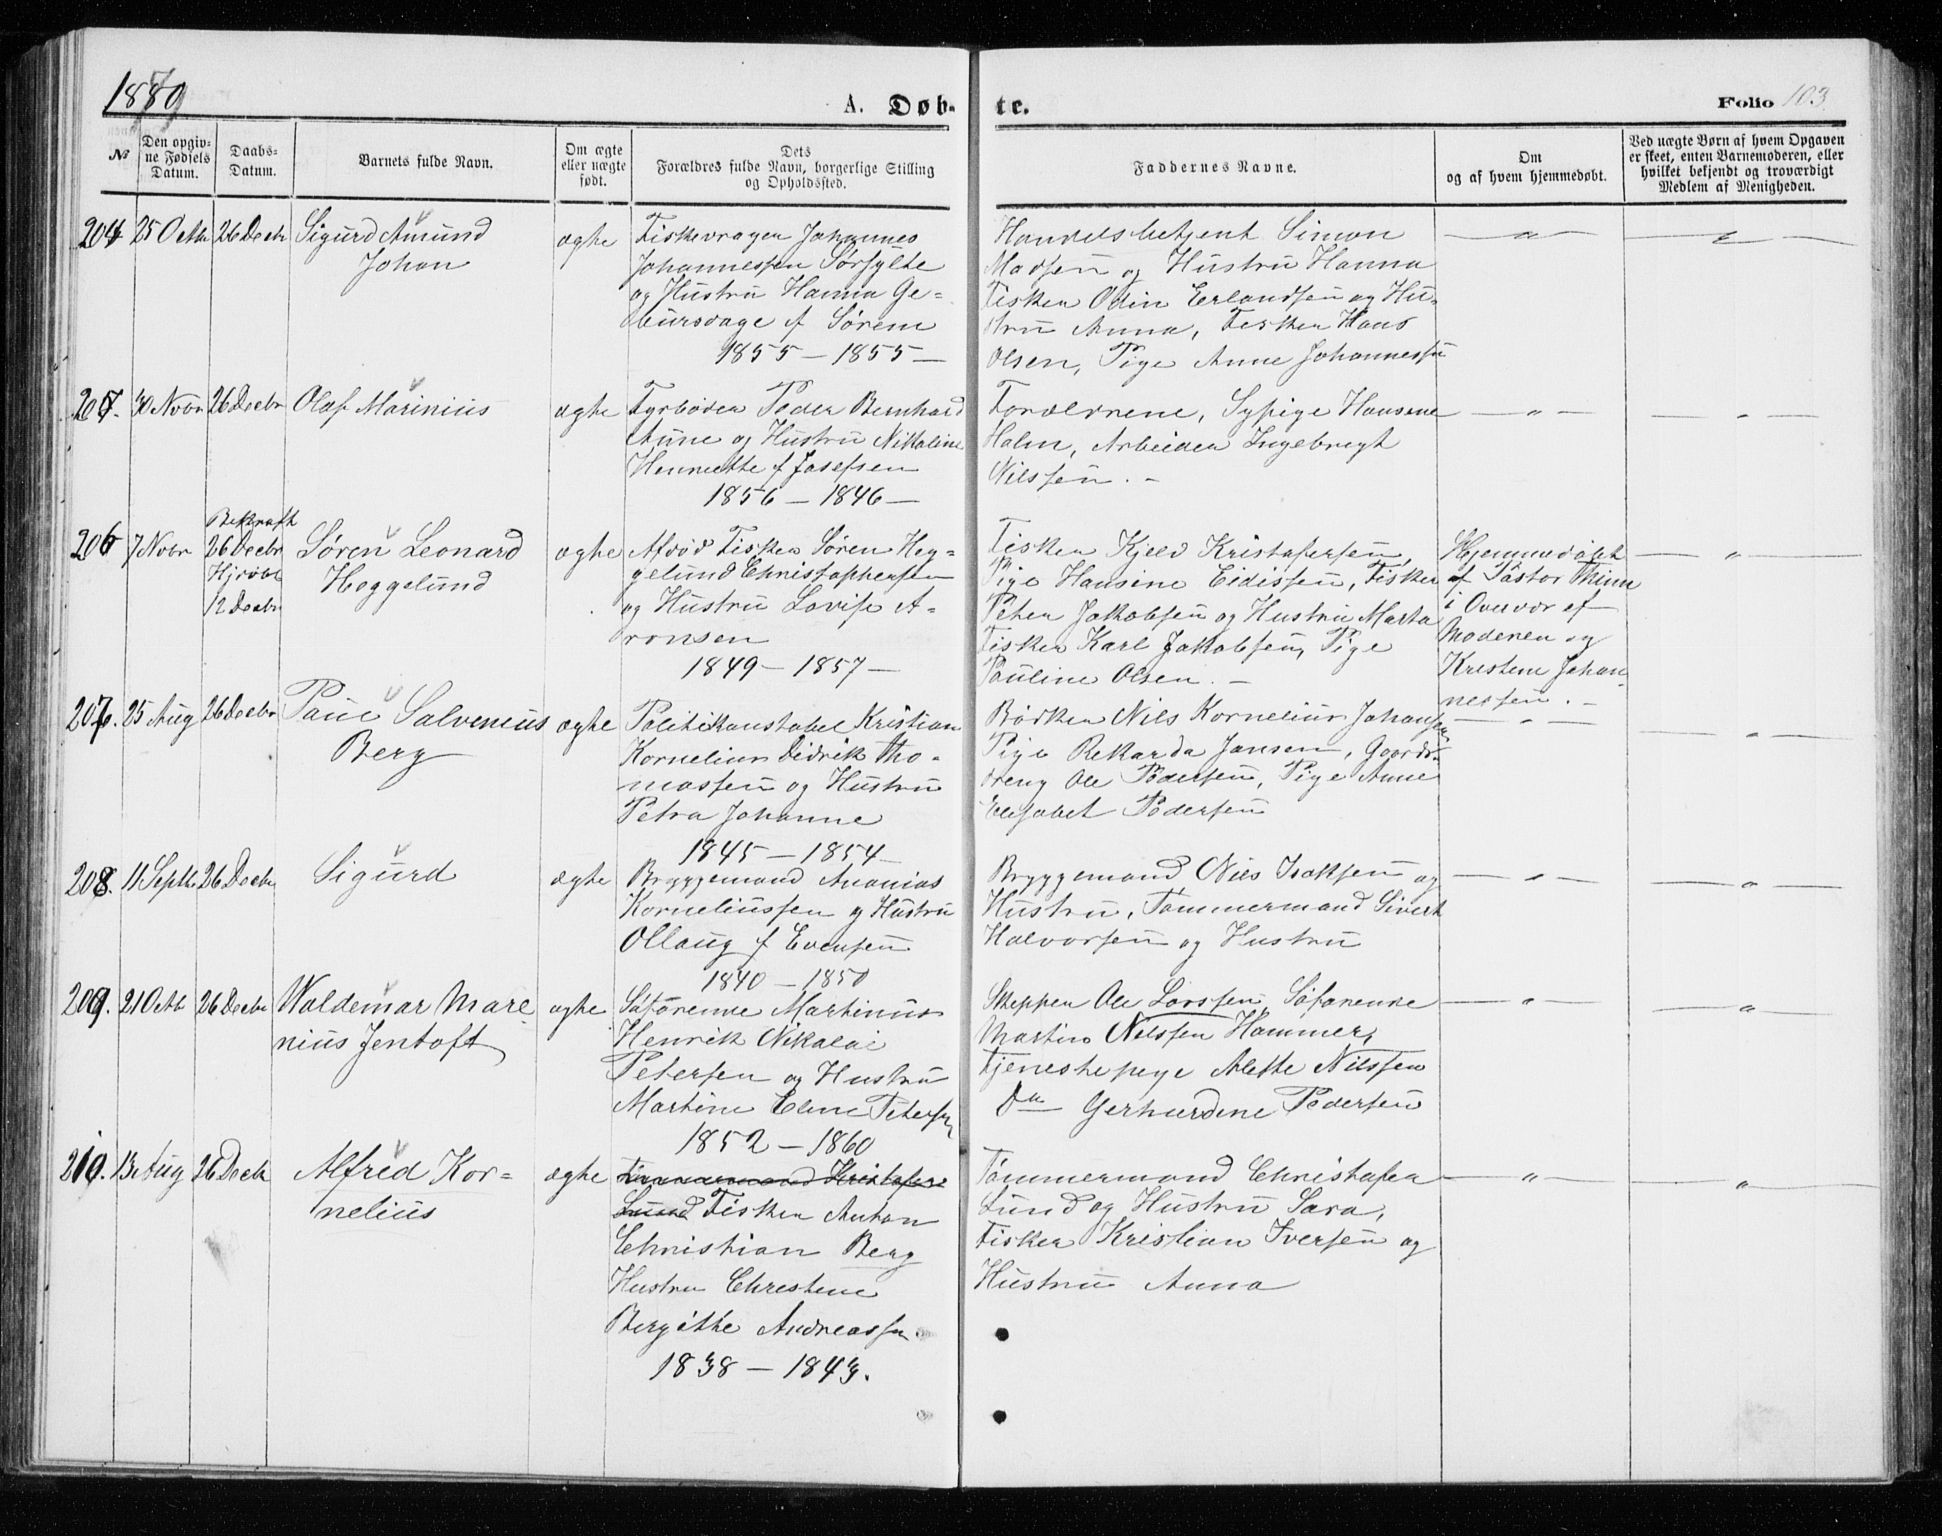 1879
A. Døb-
te.
Folio 103
No
Den opgiv-
ne Fødsels
Datum.
Daabs-
Datum.
Barnets fulde Navn.
Om ægte
eller uægte
født.
Dets
Forældres fulde Navn, borgerlige Stilling
og Opholdssted.
Faddernes Navne.
Om
og af hvem hjemmedøbt.
Ved uægte Børn af hvem Opgaven
er skeet, enten Barnemoderen, eller
hvilket bekjendt og troværdigt
Medlem af Menigheden.
204 25 Octbr 26 Decbr Sigurd Amund
Johan
ægte
Fiskevrager Johannes
Johannessen Sørfylte
og Hustru Hanna Ge-
bursdage f Sørem
1855 — 1855 —
Handelsbetjent Simon
Madsen og Hustru Hanna
Fisker Odin Erlandsen og Hu-
stru Anna, Fisker Hans
Olsen, Pige Anne Johannessen
30 Novbr 26 Decbr Olaf Marinius
ægte
Fyrbøder Peder Bernhard
Aune og Hustru Nikoline
Henriette f Josefsen
1856 — 1846 —
Forældrene, Sypige Hansene
Holm, Arbeider Ingebregt
Nilssen. —
206 7 Novbr
Bekræft
26 Decbr
Hjdøbt
12 Decbr
Søren Leonard
Heggelund
ægte
Afdød Fisker Søren Heg-
gelund Christophersen
og Hustru Lovise A-
ronsen
1849 — 1857 —
Fisker Kjeld Kristofersen,
Pige Hansine Eidissen, Fisker
Peter Jakobsen og Hustru Marta
Fisker Karl Jakobsen, Pige
Pauline Olsen. —
Hjemmedøbt
af Pastor Thinn
i Overvær af
Moderen og
Kristene Johan-
nessen. —
207. 25 Aug 26 Decbr Paul Salvenius
Berg
ægte
Politikonstabel Kristian
Kornelius Didrik Tho-
massen og Hustru
Petra Johanne
1845 — 1854
Bødker Nils Kornelius Johansen
Pige Rekarda Jansen, Gaards-
dreng Ole Pedersen, Pige Anne
Elisabet Pedersen
208. 11 Septbr 26 Decbr Sigurd
ægte
Bryggemand Ananias
Korneliussen og Hustru
Ollaug f Evensen
1840 — 1850
Bryggemand Nils Isaksen og
Hustru, Tømmermand Sivert
Halvorsen og Hustru
209. 21 Octb 26 Decbr Waldemar Mare-
nius Jentoft
ægte
Søfarende Martinus
Henrik Nikolai
Petersen og Hustru
Martine Eline Petersen
1852 — 1860
Skipper Ole Larssen, Søfarende
Martin Nilssen Hammer,
Tjenestepige Alette Nilssen
Do Gerhardine Pedersen
210. 13 Aug 26 Decbr Alfred Kor-
nelius
ægte
Tømmermand Kristofer
Lund Fisker Anton
Christian Berg
Hustru Christene
Bergitte Andreassen
1838 — 1843.
Tømmermand Christofer
Lund og Hustru Sara,
Fisker Kristian Iversen og
Hustru Anna